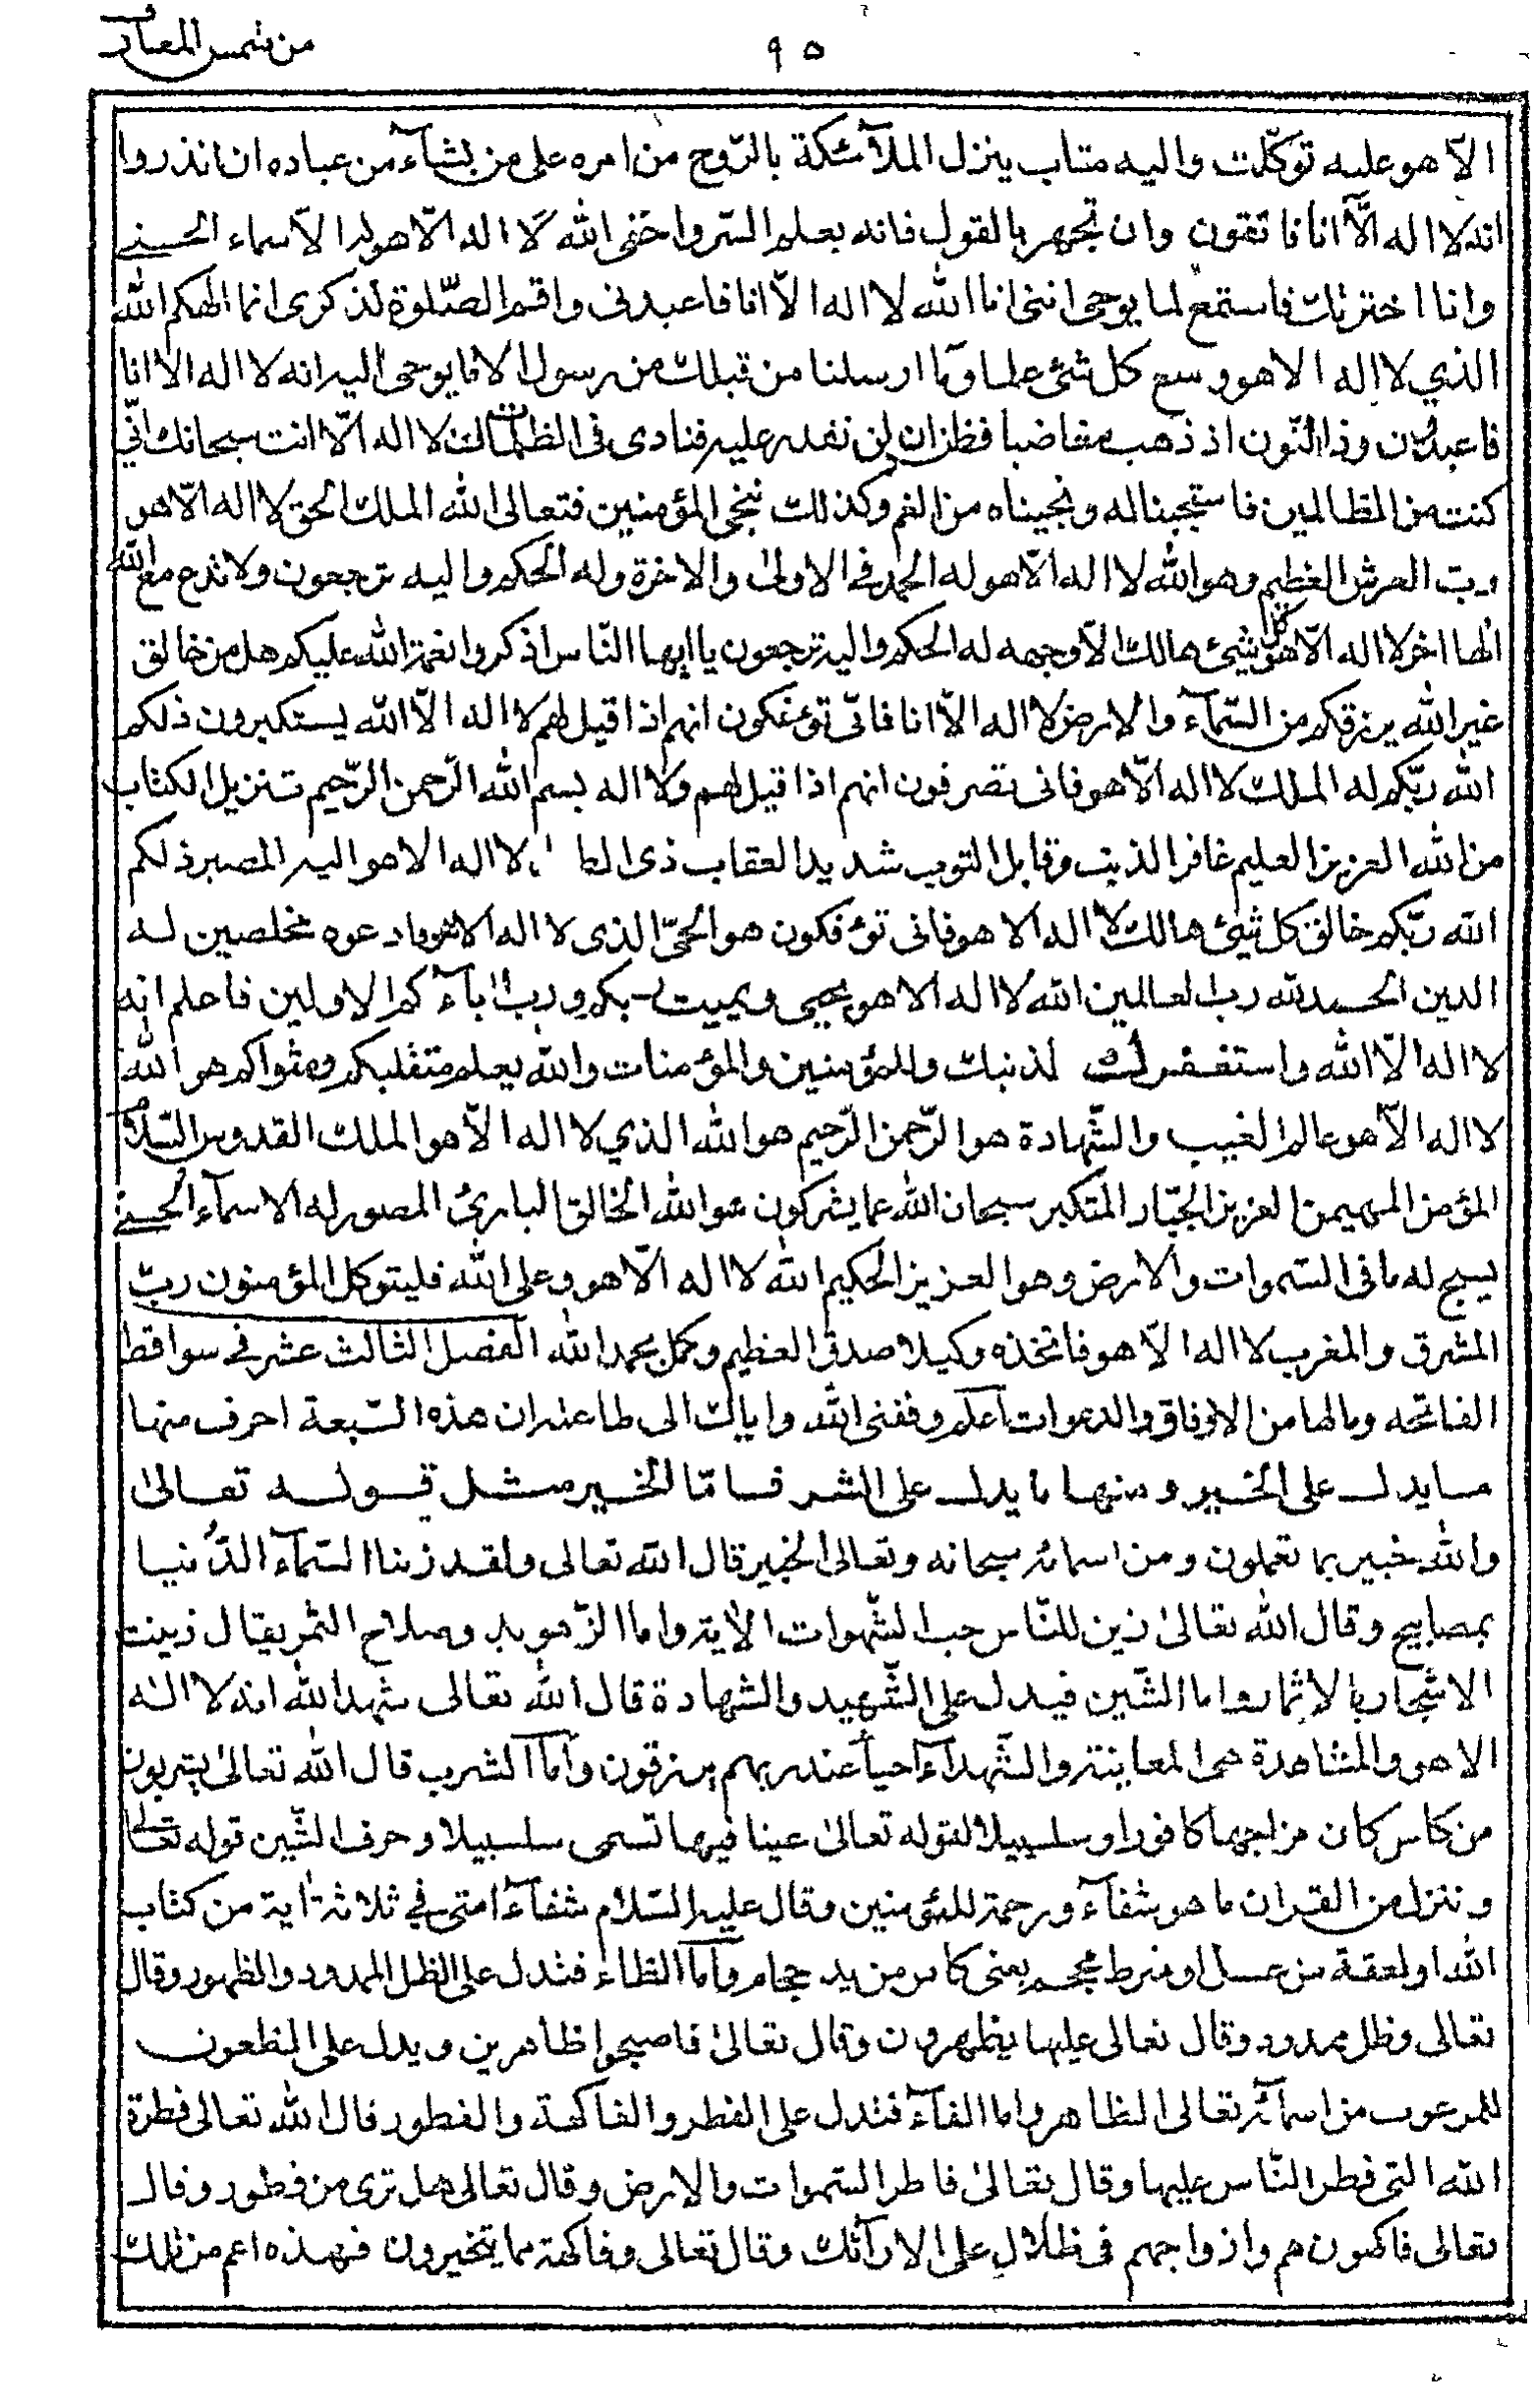 من شمس المعارف
٩٥
الّا هو عليه توكّلت واليه متاب ينزل الملآئكة بالرّوح من امره على من يشآء من عباده ان انذروا
انه لا اله الّآ انا فاتقون وان تجهر بالقول فانه يعلم السّر واخفى الله لا اله الّا هو له الاسماء الحسنى
وانا اخترتك فاستمع لما يوحى اننى انا الله لا اله الّا انا فاعبدنى واقم الصّلوة لذكرى انما الهكم الله
الذي لا اله الا هو وسع كل شئ علما وما ارسلنا من قبلك من رسول الا نا يوحى اليه انه لا اله الا انا
فاعبدون وذا النّون اذ ذهب مغاضبا فظن ان لن نقدر عليه فنادى فى الظلمات ان لا اله الّا انت سبحانك انّى
كنت من الظالمين فاستجبنا له ونجيناه من الغم وكذلك ننجى المؤمنين فتعالى الله الملك الحق لا اله الّا هو
ربّ العرش العظيم وهو الله لا اله الّا هو له الحمد فى الاولى والاخرة وله الحكم واليه ترجعون ولا تدع مع الله
الها اخر لا اله الّا هو كل شيئ هالك الّا وجهه له الحكم واليه ترجعون يا ايها النّاس اذكروا نعمة الله عليكم هل من خالق
غير الله يرزقكم من السّمآء والارض لا اله الّا انا فانّى تؤفكون انهم اذا قيل لهم لا اله الّا الله يستكبرون ذلكم
الله ربّكم له الملك لا اله الّا هو فانى تصرفون انهم اذا قيل لهم ولا اله بسم الله الرّحمن الرّحيم تنزيل الكتاب
من الله العزيز العليم غافر الذنب وقابل التوب شديد العقاب ذى الطا لا اله الا هو اليه المصير ذلكم
الله ربّكم خالق كل شيئ هالك لا اله الا هو فانى تؤفكون هو الحىّ الذى لا اله الا هو فادعوه مخلصين له
الدين الحمد لله رب العالمين الله لا اله الا هو يحيى ويميت ربكم ورب اباَءكم الاولين فاعلم انه
لا اله الّا الله واستغفر لذنبك وللمؤمنين والمؤمنات والله يعلم متقلبكم ومثواكم هو الله
لا اله الّا هو عالم الغيب والشّهادة هو الرّحمن الرّحيم هو الله الذي لا اله الّا هو الملك القدوس السّلام
المؤمن المهيمن العزيز الجبّار المتكبر سبحان الله عما يشركون هو الله الخالق البارئ المصور له الاسمآء الحسنى
يسبح له ما فى السّموات والارض وهو العزيز الحكيم الله لا اله الّا هو وعلى الله فليتوكل المؤمنون ربّ
المشرق والمغرب لا اله الّا هو فاتخذه وكيلا صدق العظيم وكمل بحمد الله الفصل الثالث عشر فى سواقط
الفاتحه ومالها من الاوفاق والدعوات اعلم وفقنى الله واياك الى طاعته ان هذه السّبعة احرف منها
ما يدل على الخير ومنها ما يدل على الشر فامّا الخير مثل قوله تعالى
والله خبير بما تعملون ومن اسمائه سبحانه وتعالى الخبير قال الله تعالى ولقد زينا السّمآء الدّنيا
بمصابيح وقال الله تعالى زين للنّاس حب الشّهوات الاية واما الزّهو يد وصلاح الثمر يقال زينت
الاشجار بالاثمار واما الشّين فيدل على الشّهيد والشهادة قال الله تعالى شهد الله انه لا اله
الا هو والمشاهدة هى المعاينة والشّهداَء احياَء عند ربهم يرزقون وامّا الشرب قال الله تعالى يشربون
من كاس كان مزاجها كافورا وسلسبيلا لقوله تعالى عينا فيها تسمى سلسبيلا وحرف الشّين قوله تعالى
وننزل من القران ما هو شفآء ورحمة للمؤمنين وقال عليه السّلام شفآء امتى فى ثلاثة اية من كتاب
الله او لعقة من عسل او شرط محجم يعنى كاس من يد حجام وامّا الظاء فتدل على الظل الممدود والظهور وقال
تعالى وظل ممدود وقال تعالى عليها يظهرون وقال تعالى فاصبحوا ظاهرين ويدل على المظعون
المرعوب من اسمآئه تعالى الظاهر واما الفآء فتدل على الفطر والفاكهة والفطور قال الله تعالى فطرة
الله التى فطر النّاس عليها وقال تعالى فاطر السّموات والارض وقال تعالى هل ترى من فطور وقال
تعالى فاكهون هم وازواجهم فى ظلال على الارآئك وقال تعالى وفاكهة مما يتخيرون فهذه اعم من تلك